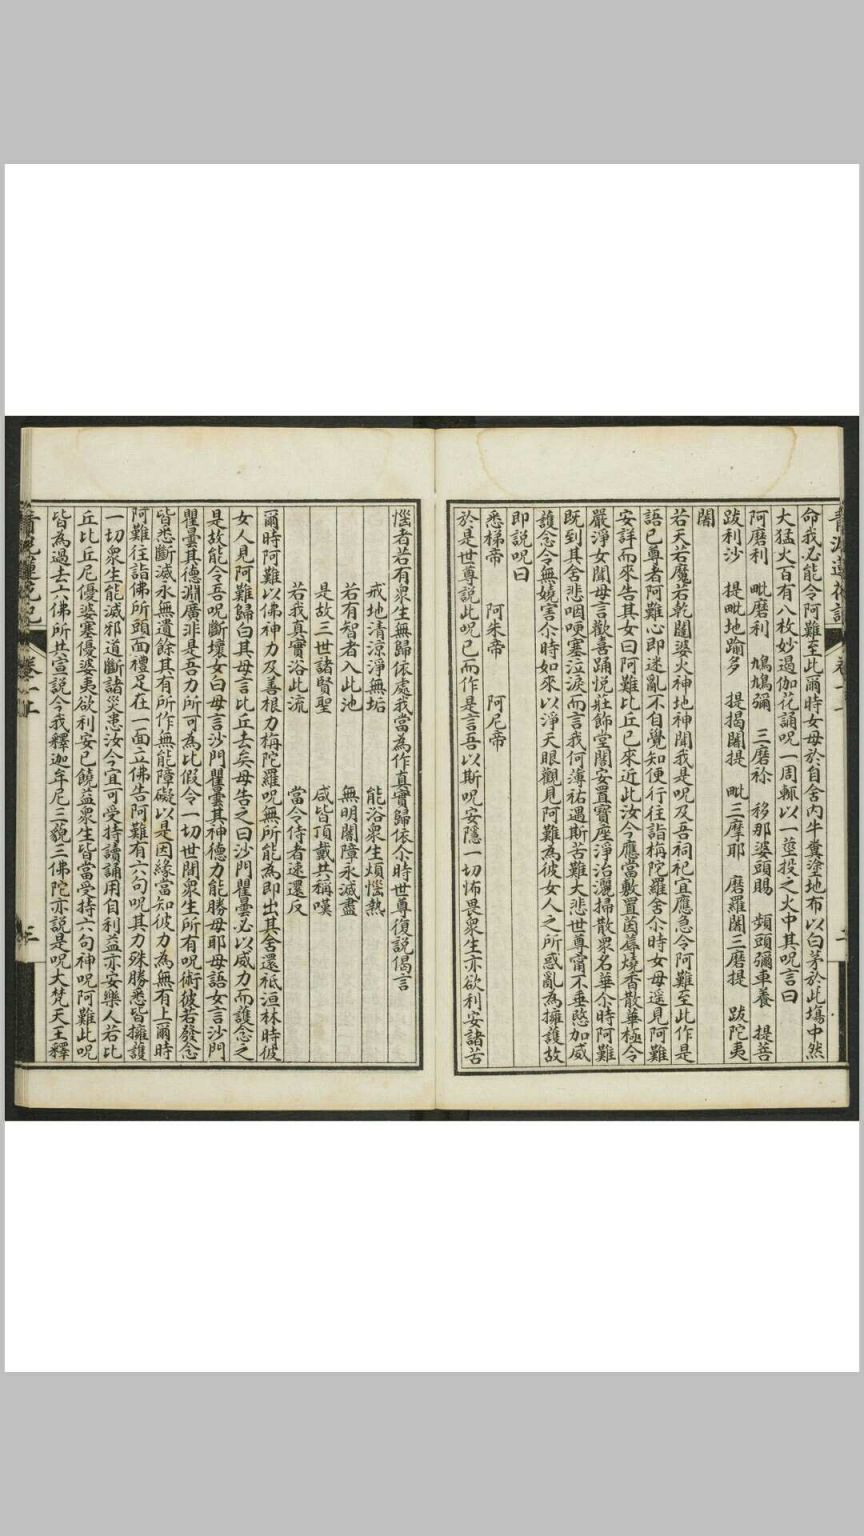 命我必能令阿難至此爾時女母於自舍內牛糞塗地布以白茅於此塲中然
大猛火百有八枚妙遏伽花誦呪一周輒以一莖投之火中其呪言曰
阿磨利　毗磨利　鳩鳩彌　三磨祢　移那婆頭賜　頻頭彌車養　提菩
跋利沙　提毗地踰多　提揭闍提　毗三摩耶　磨羅闍三磨提　跋陀夷
闍
若天若魔若乾闥婆火神地神聞我是呪及吾祠祀宜應急令阿難至此作是
語已尊者阿難心即迷亂不自覺知便行往詣梅陀羅舍尒時女母遙見阿難
安詳而來告其女曰阿難比丘已來近此汝今應當敷置茵蓐燒香散華極令
嚴淨女聞母言歡喜踊悅莊飾堂閣安置寶座淨治灑掃散衆名華尒時阿難
既到其舍悲咽哽塞泣淚而言我何薄祐遇斯苦難大悲世尊甯不垂愍加威
護念令無嬈害尒時如來以淨天眼觀見阿難為彼女人之所惑亂為擁護故
即説呪曰
悉梯帝　阿朱帝　阿尼帝
於是世尊說此呪已而作是言吾以斯呪安隱一切怖畏衆生亦欲利安諸苦
惱者若有衆生無歸依處我當為作真實歸依尒時世尊復說偈言
戒地清涼淨無垢　能浴衆生煩惱熱
若有智者入此池　無明闇障永滅盡
是故三世諸賢聖　咸皆頂戴共稱嘆
若我真實浴此流　當令侍者速還反
爾時阿難以佛神力及善根力梅陀羅呪無所能為即出其舍還祇洹林時彼
女人見阿難歸白其母言比丘去矣母告之曰沙門瞿曇必以威力而護念之
是故能令吾呪斷壞女白母言沙門瞿曇其神德力能勝母耶母語女言沙門
瞿曇其德淵廣非是吾力所可為比假令一切世間衆生所有呪術彼若發念
皆悉斷滅永無遺餘其有所作無能障礙以是因緣當知彼力為無有上爾時
阿難往詣佛所頭面禮足在一面立佛告阿難有六句呪其力殊勝悉皆擁護
一切衆生能滅邪道斷諸災患汝今宜可受持讀誦用自利益亦安樂人若比
丘比丘尼優婆塞優婆夷欲利安已饒益衆生皆當受持六句神呪阿難此呪
皆為過去六佛所共宣說今我釋迦牟尼三藐三佛陀亦說是呪大梵天王釋